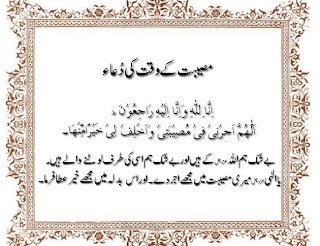 مصیبت کے وقت کی دُعاء
اِنَّا لِلّٰهِ وَاِنَّا اِلَيْهِ رَاجِعُوْنَ ۔
اَللّٰهُمَّ اَجِرْنِيْ فِيْ مُصِيْبَتِيْ وَاَخْلِفْ لِيْ خَيْرًا مِّنْهَا۔
بے شک ہم اللہ کے ہیں اور بے شک ہم اسی کی طرف لوٹنے والے ہیں۔
یا الٰہی میری مصیبت میں مجھے اجر دے۔ اور اس بدلہ میں مجھے خیر عطا فرما۔